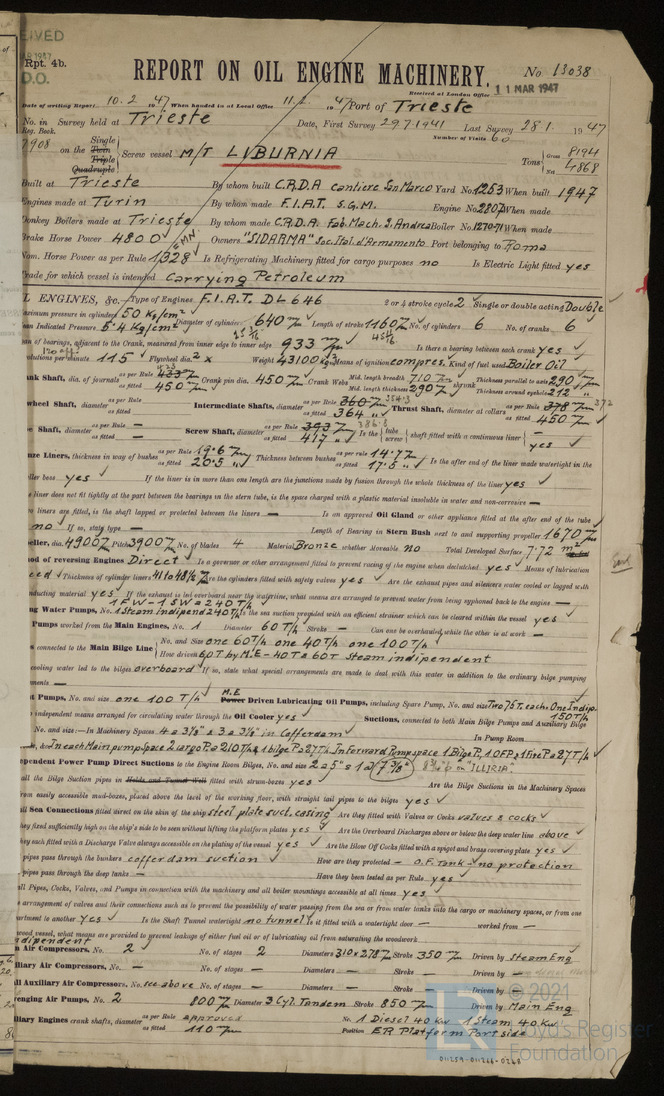 EIVED
MAR 1947
D.O.
Rpt. 4b.
REPORT ON OIL ENGINE MACHINERY.
No 13038
Received at London Office 11 MAR 1947
Date of writing Report 10.2.1947 When handed in at Local Office 11.2.1947 Port of Trieste
No. in Reg. Book. Survey held at Trieste Date, First Survey 29.7.1941 Last Survey 28.1.1947
Number of Visits 60
7908 on the Single Twin Triple Quadruple Screw vessel M/T LIBURNIA Tons Gross 8194 Net 4868
Built at Trieste By whom built C.R.D.A cantiere San Marco Yard No. 1253 When built 1947
Engines made at Turin By whom made F.I.A.T. S.G.M. Engine No. 2807 When made
Donkey Boilers made at Trieste By whom made C.R.D.A. Fab. Mach. S. Andrea Boiler No. 1270-71 When made
Brake Horse Power 4800 Owners "SIDARMA" Soc. Ital. d'Armamento Port belonging to Roma
Nom. Horse Power as per Rule 1328 = MN Is Refrigerating Machinery fitted for cargo purposes no Is Electric Light fitted yes
Trade for which vessel is intended Carrying Petroleum
L ENGINES, &c. Type of Engines F.I.A.T. DL 646 2 or 4 stroke cycle 2 Single or double acting Double
aximum pressure in cylinders 50 Kg/cm² Diameter of cylinders 640 m/m Length of stroke 1160 m/m No. of cylinders 6 No. of cranks 6
ean Indicated Pressure 5.4 Kg/cm²
an of bearings, adjacent to the Crank, measured from inner edge to inner edge 933 m/m Is there a bearing between each crank yes
olutions per minute 115 Flywheel dia. x Weight 43100 kg Means of ignition compres. Kind of fuel used Boiler Oil
ank Shaft, dia. of journals as per Rule 433 m/m as fitted 450 m/m Crank pin dia. 450 m/m Crank Webs Mid. length breadth 710 m/m Mid. length thickness 290 m/m shrunk Thickness parallel to axis 290 m/m Thickness around eyehole 212 "
wheel Shaft, diameter as per Rule as fitted Intermediate Shafts, diameter as per Rule 360 m/m 354.3 as fitted 364 " Thrust Shaft, diameter at collars as per Rule 378 m/m 372 as fitted 450 m/m
be Shaft, diameter as per Rule — as fitted — Screw Shaft, diameter as per Rule 393 m/m 386.8 as fitted 417 " Is the tube screw shaft fitted with a continuous liner — yes
nze Liners, thickness in way of bushes as per Rule 19.6 m/m as fitted 20.5 " Thickness between bushes as per rule 14.77 as fitted 17.5 " Is the after end of the liner made watertight in the
ller boss yes If the liner is in more than one length are the junctions made by fusion through the whole thickness of the liner yes
e liner does not fit tightly at the part between the bearings in the stern tube, is the space charged with a plastic material insoluble in water and non-corrosive —
o liners are fitted, is the shaft lapped or protected between the liners — Is an approved Oil Gland or other appliance fitted at the after end of the tube
no If so, state type — Length of Bearing in Stern Bush next to and supporting propeller 1670 m/m
eller, dia. 4900 m/m Pitch 3900 m/m No. of blades 4 Material Bronze whether Moveable no Total Developed Surface 7.72 m²
od of reversing Engines Direct Is a governor or other arrangement fitted to prevent racing of the engine when declutched. yes Means of lubrication
ced Thickness of cylinder liners 41 to 48½ m/m Are the cylinders fitted with safety valves yes Are the exhaust pipes and silencers water cooled or lagged with
nducting material yes If the exhaust is led overboard near the waterline, what means are arranged to prevent water from being syphoned back to the engine —
1 F.W - 1 S.W = 240 T/h
ng Water Pumps, No. 1 Steam Independ 240 T/h Is the sea suction provided with an efficient strainer which can be cleared within the vessel yes
Pumps worked from the Main Engines, No. 1 Diameter 60 T/h Stroke — Can one be overhauled while the other is at work —
s connected to the Main Bilge Line No. and Size one 60 T/h one 40 T/h one 100 T/h
How driven 60 T by M.E - 40 T & 60 T Steam independent
cooling water led to the bilges overboard If so, state what special arrangements are made to deal with this water in addition to the ordinary bilge pumping
ments. —
t Pumps, No. and size one 100 T/h M.E Power Driven Lubricating Oil Pumps, including Spare Pump, No. and size Two 75 T. each. One Indip. 150 T/h
independent means arranged for circulating water through the Oil Cooler yes Suctions, connected to both Main Bilge Pumps and Auxiliary Bilge
No. and size:—In Machinery Spaces 4 a 3⅛" & 3 a 3⅛" in Cofferdam In Pump Room
In each Main pump Space 2 cargo P. a 210 T/h & 1 bilge P. a 87 T/h In Forward Pump space 1 Bilge P, 1 O.F.P & 1 Fire P a 87 T/h
pendent Power Pump Direct Suctions to the Engine Room Bilges, No. and size 2 a 5" & 1 a 7⅞" on "ILLIRIA".
all the Bilge Suction pipes in Holds and Tunnel Well fitted with strum-boxes yes Are the Bilge Suctions in the Machinery Spaces
rom easily accessible mud-boxes, placed above the level of the working floor, with straight tail pipes to the bilges yes
ll Sea Connections fitted direct on the skin of the ship steel plate suct. casing Are they fitted with Valves or Cocks valves & cocks
hey fixed sufficiently high on the ship's side to be seen without lifting the platform plates yes Are the Overboard Discharges above or below the deep water line above
hey each fitted with a Discharge Valve always accessible on the plating of the vessel yes Are the Blow Off Cocks fitted with a spigot and brass covering plate yes
pipes pass through the bunkers cofferdam suction How are they protected — O.F. Tank - no protection
pipes pass through the deep tanks — Have they been tested as per Rule yes
all Pipes, Cocks, Valves, and Pumps in connection with the machinery and all boiler mountings accessible at all times yes
e arrangement of valves and their connections such as to prevent the possibility of water passing from the sea or from water tanks into the cargo or machinery spaces, or from one
artment to another yes Is the Shaft Tunnel watertight no tunnel Is it fitted with a watertight door — worked from —
wood vessel, what means are provided to prevent leakage of either fuel oil or of lubricating oil from saturating the woodwork
independent
n Air Compressors, No. 2 No. of stages 2 Diameters 310 x 278 m/m Stroke 350 m/m Driven by Steam Eng
iliary Air Compressors, No. — No. of stages — Diameters — Stroke — Driven by —
ll Auxiliary Air Compressors, No. see above No. of stages — Diameters — Stroke — Driven by —
enging Air Pumps, No. 2 800 m/m Diameter 3 Cyl. Tandem Stroke 850 m/m Driven by Main Eng
iliary Engines crank shafts, diameter as per Rule approved as fitted 110 m/m No. 1 Diesel 40 Kw 1 Steam 40 Kw
Position E.R Platform Port side
© 2021
Lloyd's Register
Foundation
011259-011266-0268